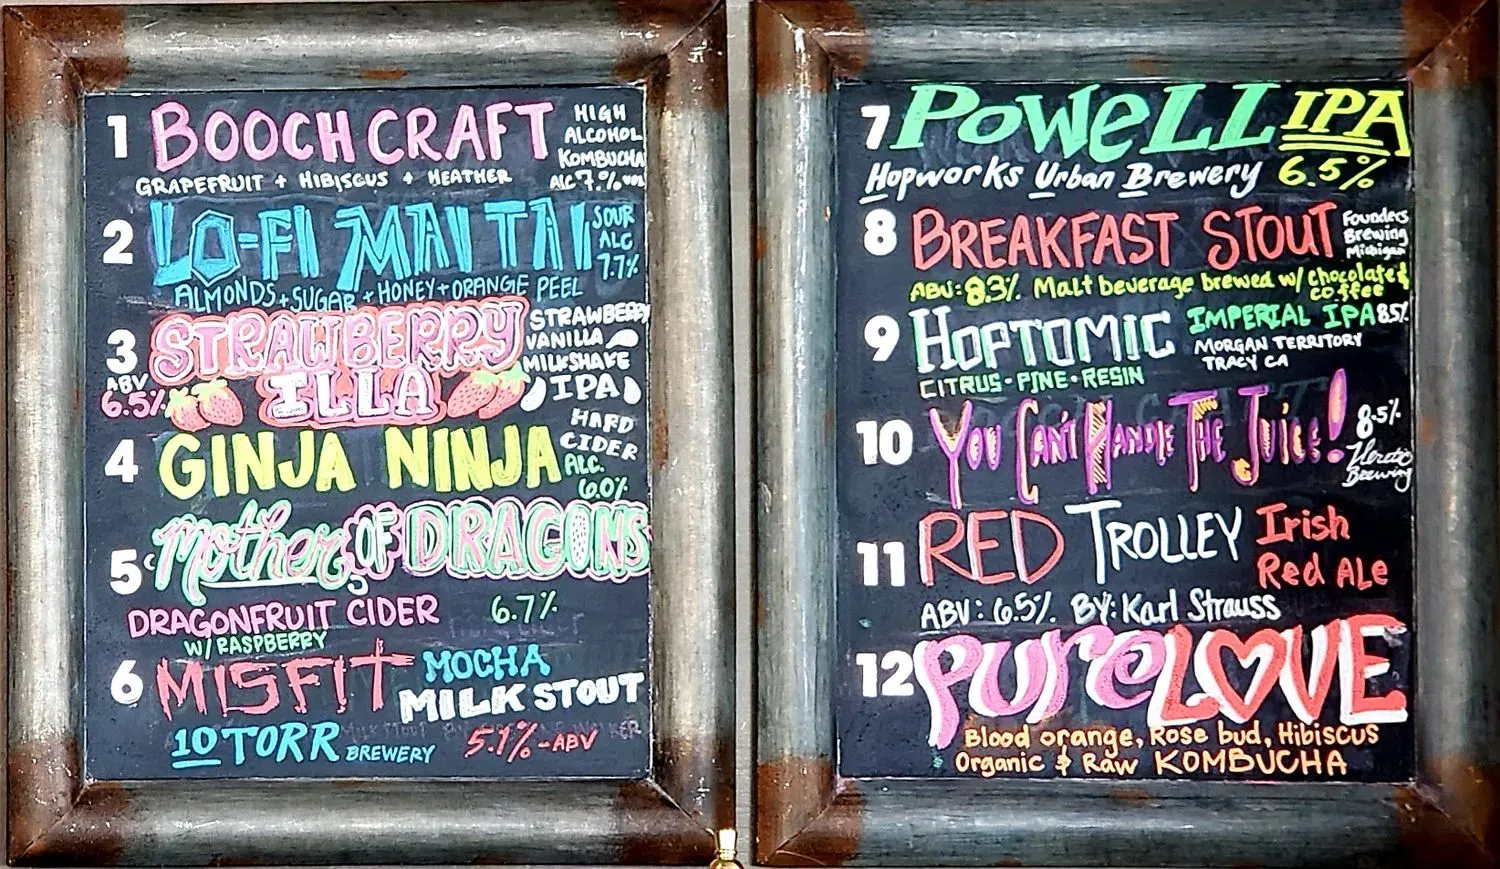 1 BOOCHCRAFT HIGH ALCOHOL KOMBUCHA
GRAPEFRUIT + HIBISCUS + HEATHER ALC 7.% VOL
2 LO-FI MAI TAI SOUR ALC 7.7%
ALMONDS + SUGAR + HONEY + ORANGE PEEL
3 STRAWBERRY ILLA STRAWBERRY VANILLA MILKSHAKE IPA
ABV 6.5%
4 GINJA NINJA HARD CIDER ALC. 6.0%
5 Mother OF DRAGONS
DRAGONFRUIT CIDER 6.7%
W/ RASPBERRY
6 MISFIT MOCHA MILK STOUT
10 TORR BREWERY 5.1% - ABV
7 POWELL IPA
Hopworks Urban Brewery 6.5%
8 BREAKFAST STOUT Founders Brewing Michigan
ABV: 8.3% Malt beverage brewed w/ chocolate & coffee
9 HOPTOMIC IMPERIAL IPA 8.5%
MORGAN TERRITORY
TRACY CA
CITRUS • PINE • RESIN
10 YOU CAN'T HANDLE THE JUICE! 8.5%
Heretic Brewing
11 RED TROLLEY Irish Red Ale
ABV: 6.5% BY: Karl Strauss
12 PURE LOVE
Blood orange, Rose bud, Hibiscus
Organic & Raw KOMBUCHA